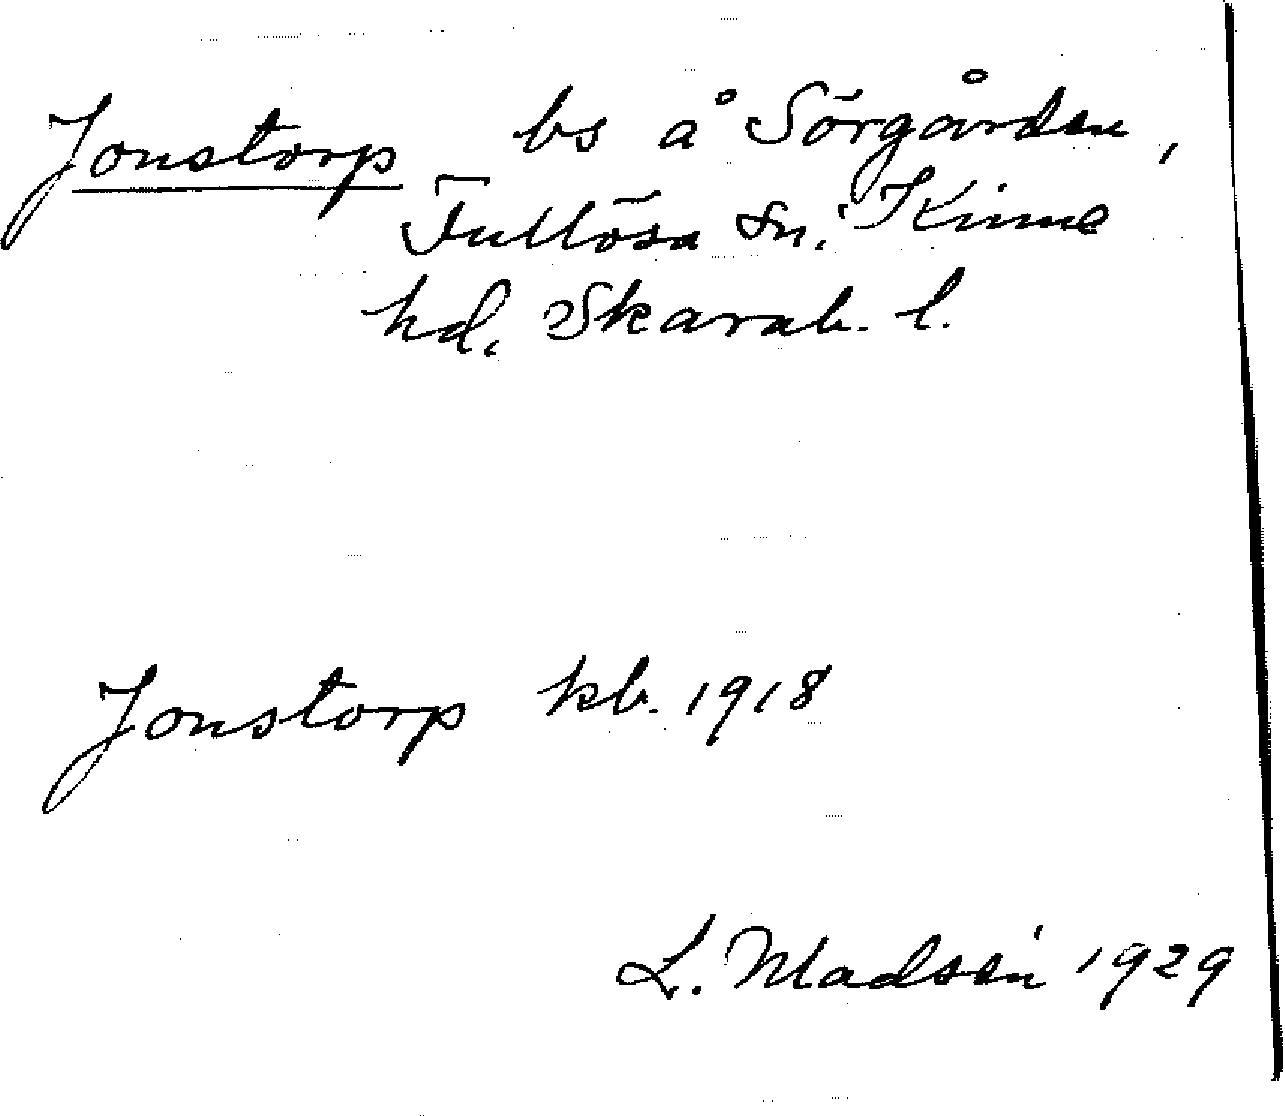 Jonstorp bs å Sörgården,
Fullösa sn. Kinne
hd. Skarab. l.
Jonstorp kb. 1918
L. Madsén 1929